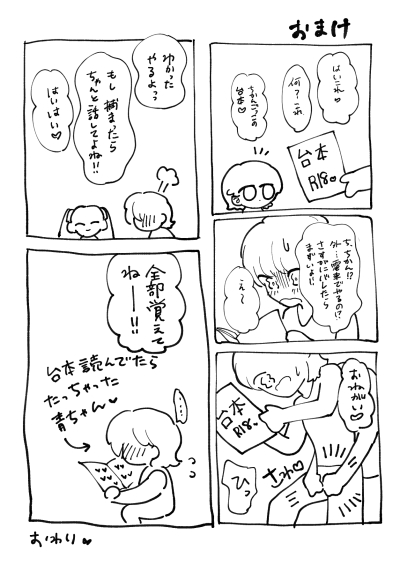 おまけ
はいこれ♡
何?これ
ちかんごっこの
台本♡
台本
R18♡
ち、ちかん!?
外…電車でやるの!?
さすがにバレたら
まずいよ…!
え〜
おねがい♡
台本
R18♡
さわ♡
ひっ
わかった
やるよっ
もし捕まったら
ちゃんと話してよね!!
はいはい♡
全部覚えて
ねー!!
台本読んでたら
たっちゃった
青ちゃん♡
……
おわり♥